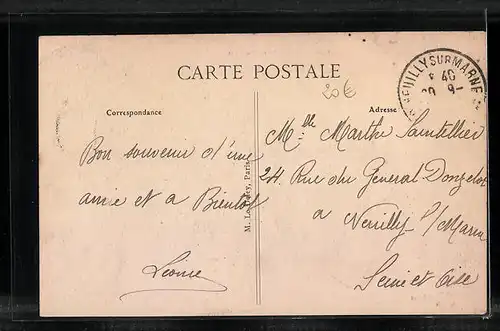 CARTE POSTALE
20€
Correspondance
Adresse
NEUILLY SUR MARNE
8 40
Bon souvenir d'une
amie et a Bientot
Léonie
Mlle Marthe Saintellier
24 Rue du General Donzelot
a Neuilly s/ Marne
Seine et Oise
Paris